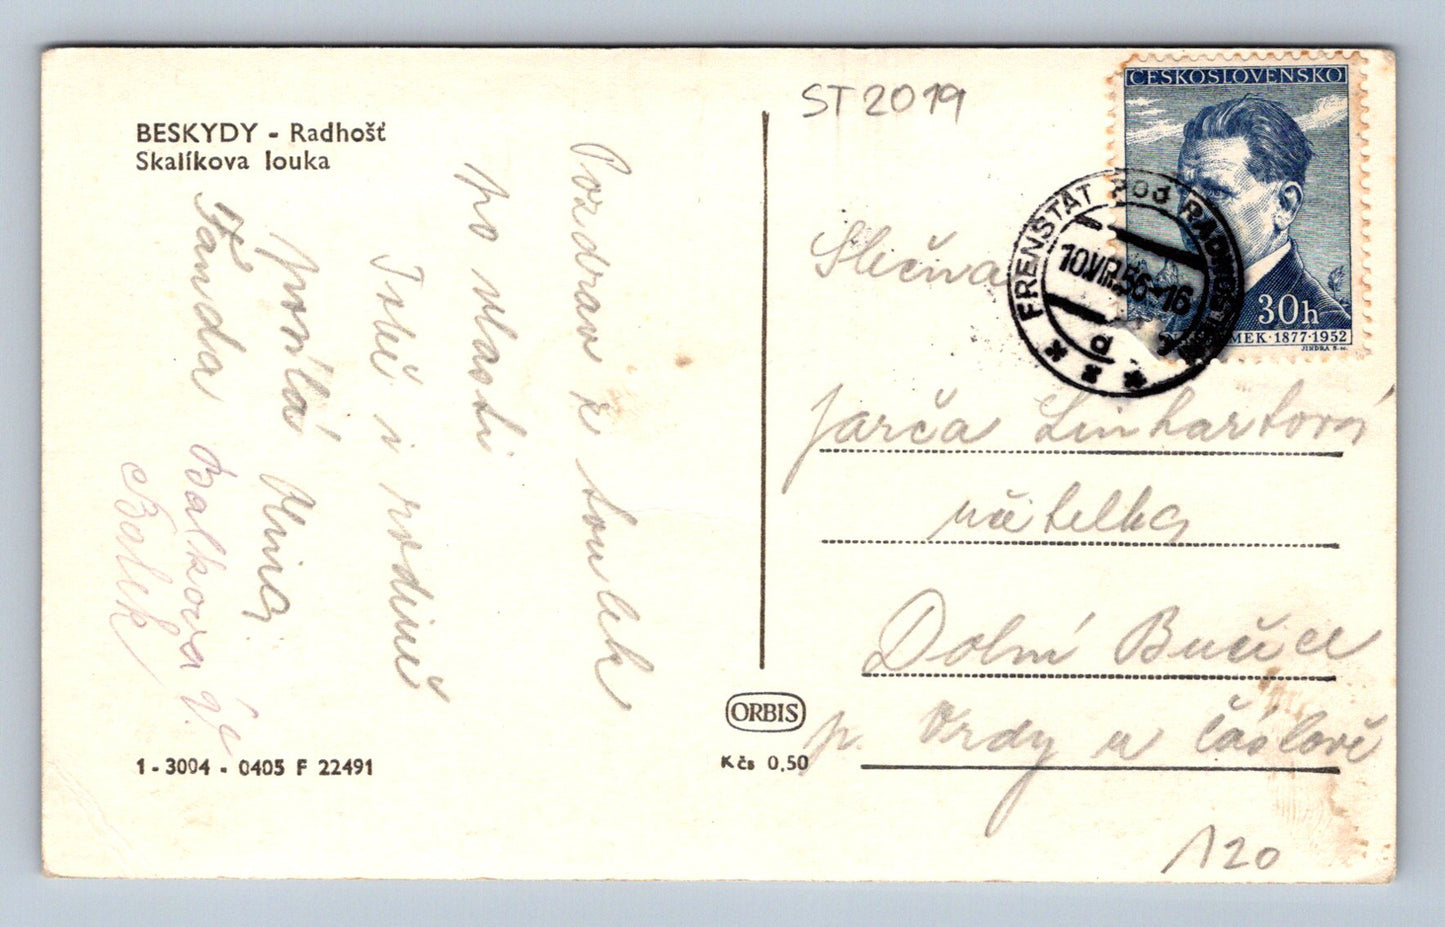 BESKYDY - Radhošť
Skalíkova louka
Pozdrav z toulek
po vlasti
Tobě i rodině
posílá
Fanda
Balkova
Bolek
1 - 3004 - 0405 F 22491
ORBIS
Kčs 0,50
ST2019
ČESKOSLOVENSKO
30h
MEK·1877·1952
JINDRA
FRENŠTÁT POD RADHOŠTĚM
10.VIII.56-16
a
Slečna
Jarča Linhartová
učitelka
Dolní Bučice
p. Vrdy u Čáslavě
120